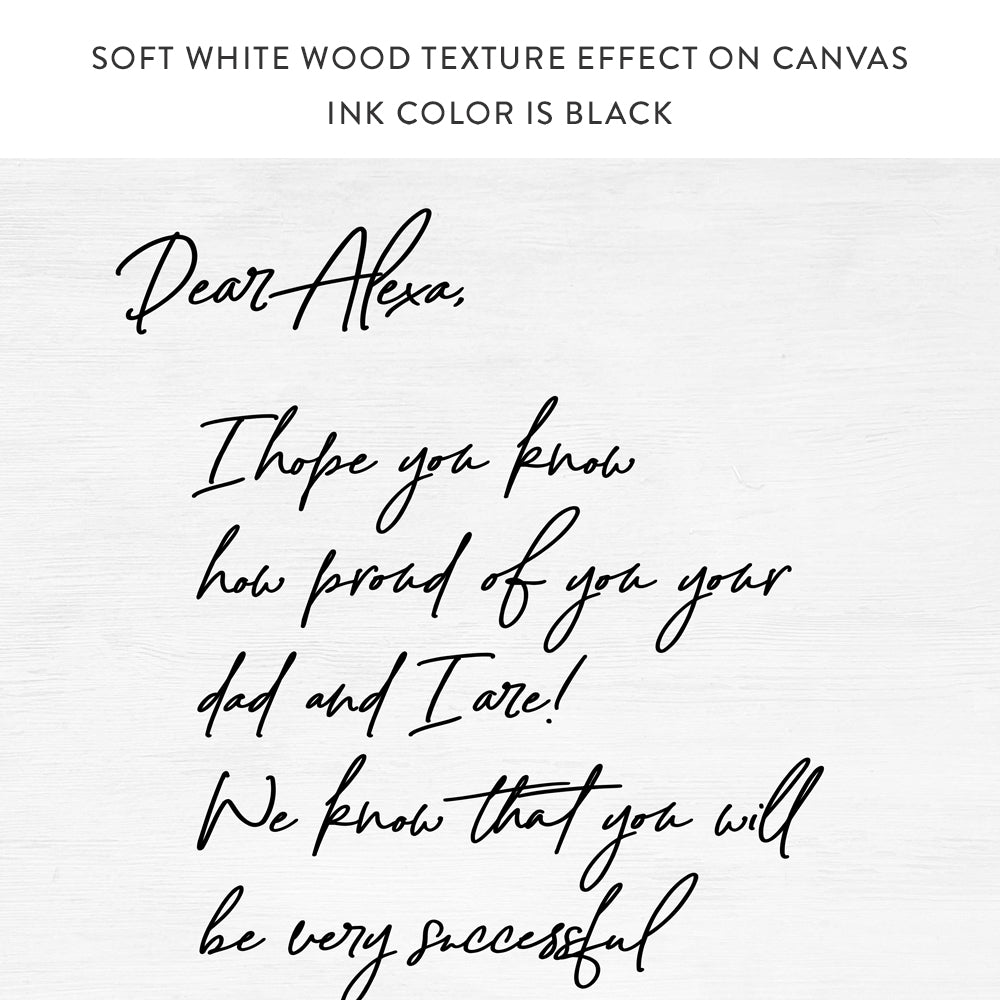 SOFT WHITE WOOD TEXTURE EFFECT ON CANVAS
INK COLOR IS BLACK
Dear Alexa,
I hope you know
how proud of you your
dad and I are!
We know that you will
be very successful